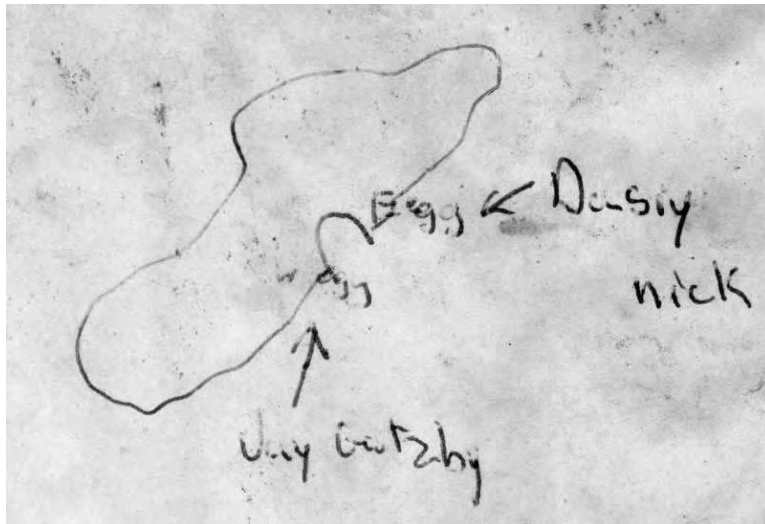 E egg ← Dasiy
nick
w egg
Jay Gatzby